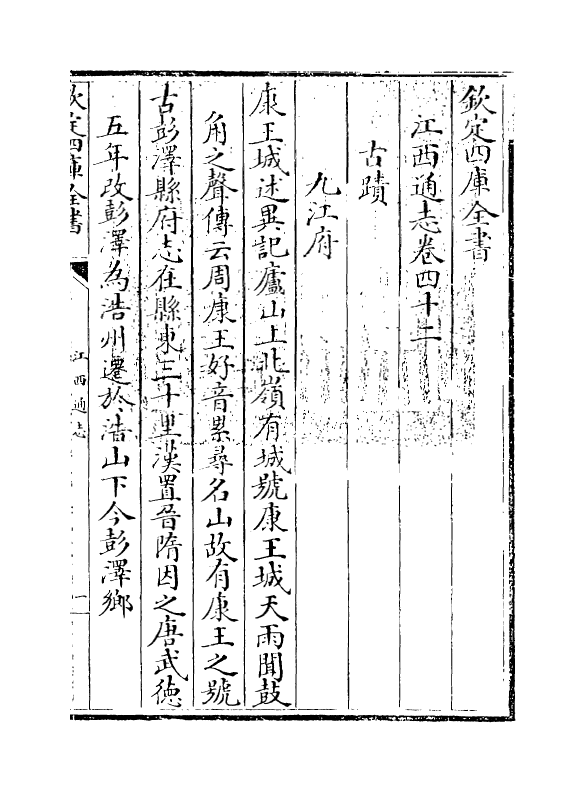 欽定四庫全書
江西通志卷四十二
古蹟
九江府
康王城述異記廬山上北嶺有城號康王城天雨聞鼓
角之聲傳云周康王好音累尋名山故有康王之號
古彭澤縣府志在縣東三十里漢置晉隋因之唐武徳
五年改彭澤為浩州遷於浩山下今彭澤鄉
欽定四庫全書
江西通志
一